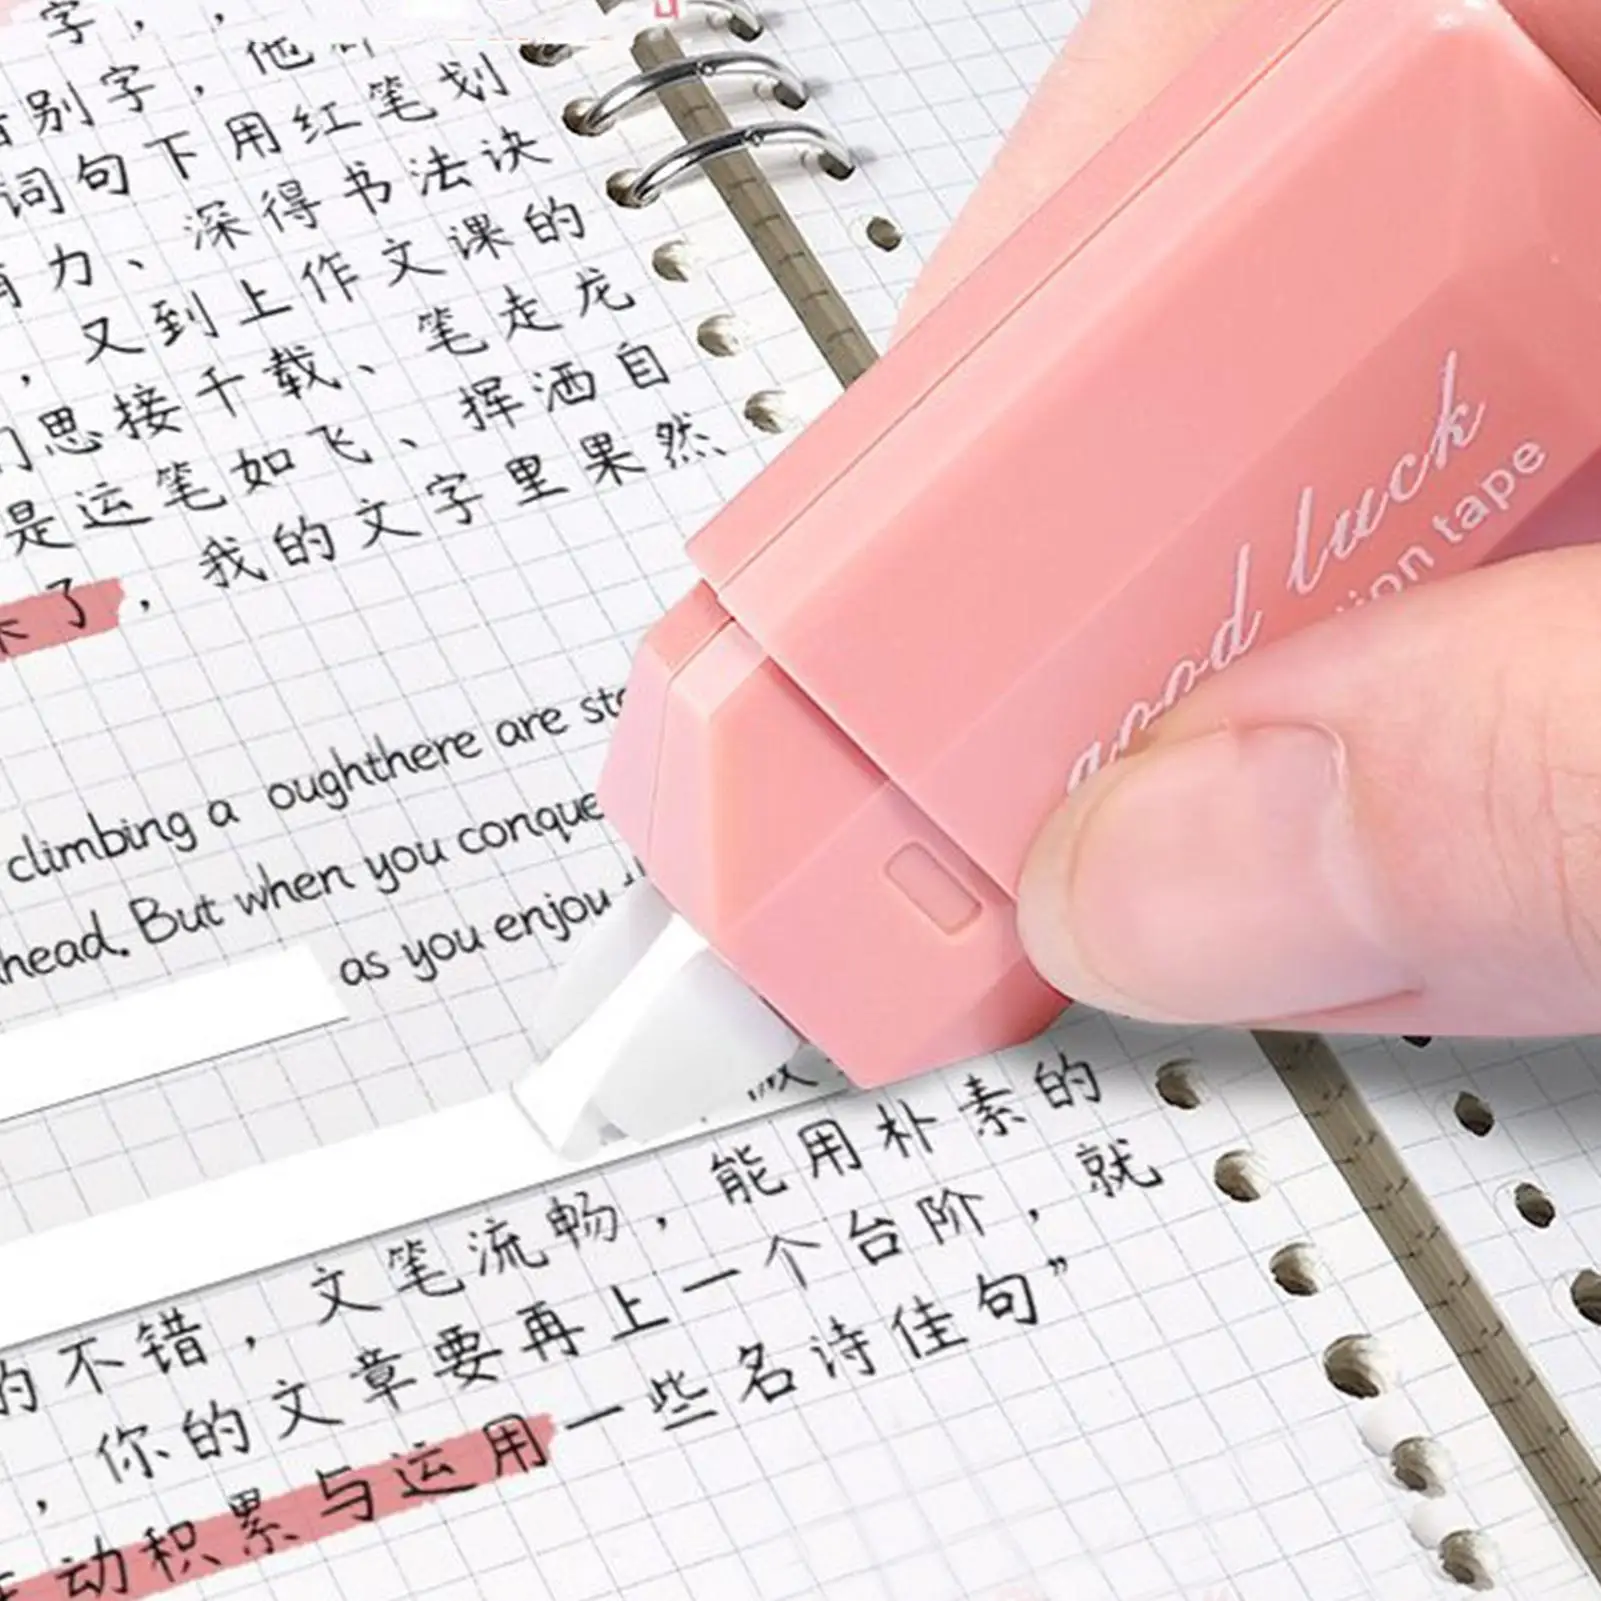 字，
别字，他
词句下用红笔划
力、深得书法诀
，又到上作文课的
思接千载、笔走龙
是运笔如飞、挥洒自
了，我的文字里果然
climbing a oughthere are
head. But when you conque
as you enjoy
能用朴素的
的不错，文笔流畅，就
，你的文章要再上一个台阶，
动积累与运用一些名诗佳句”
good luck
tape